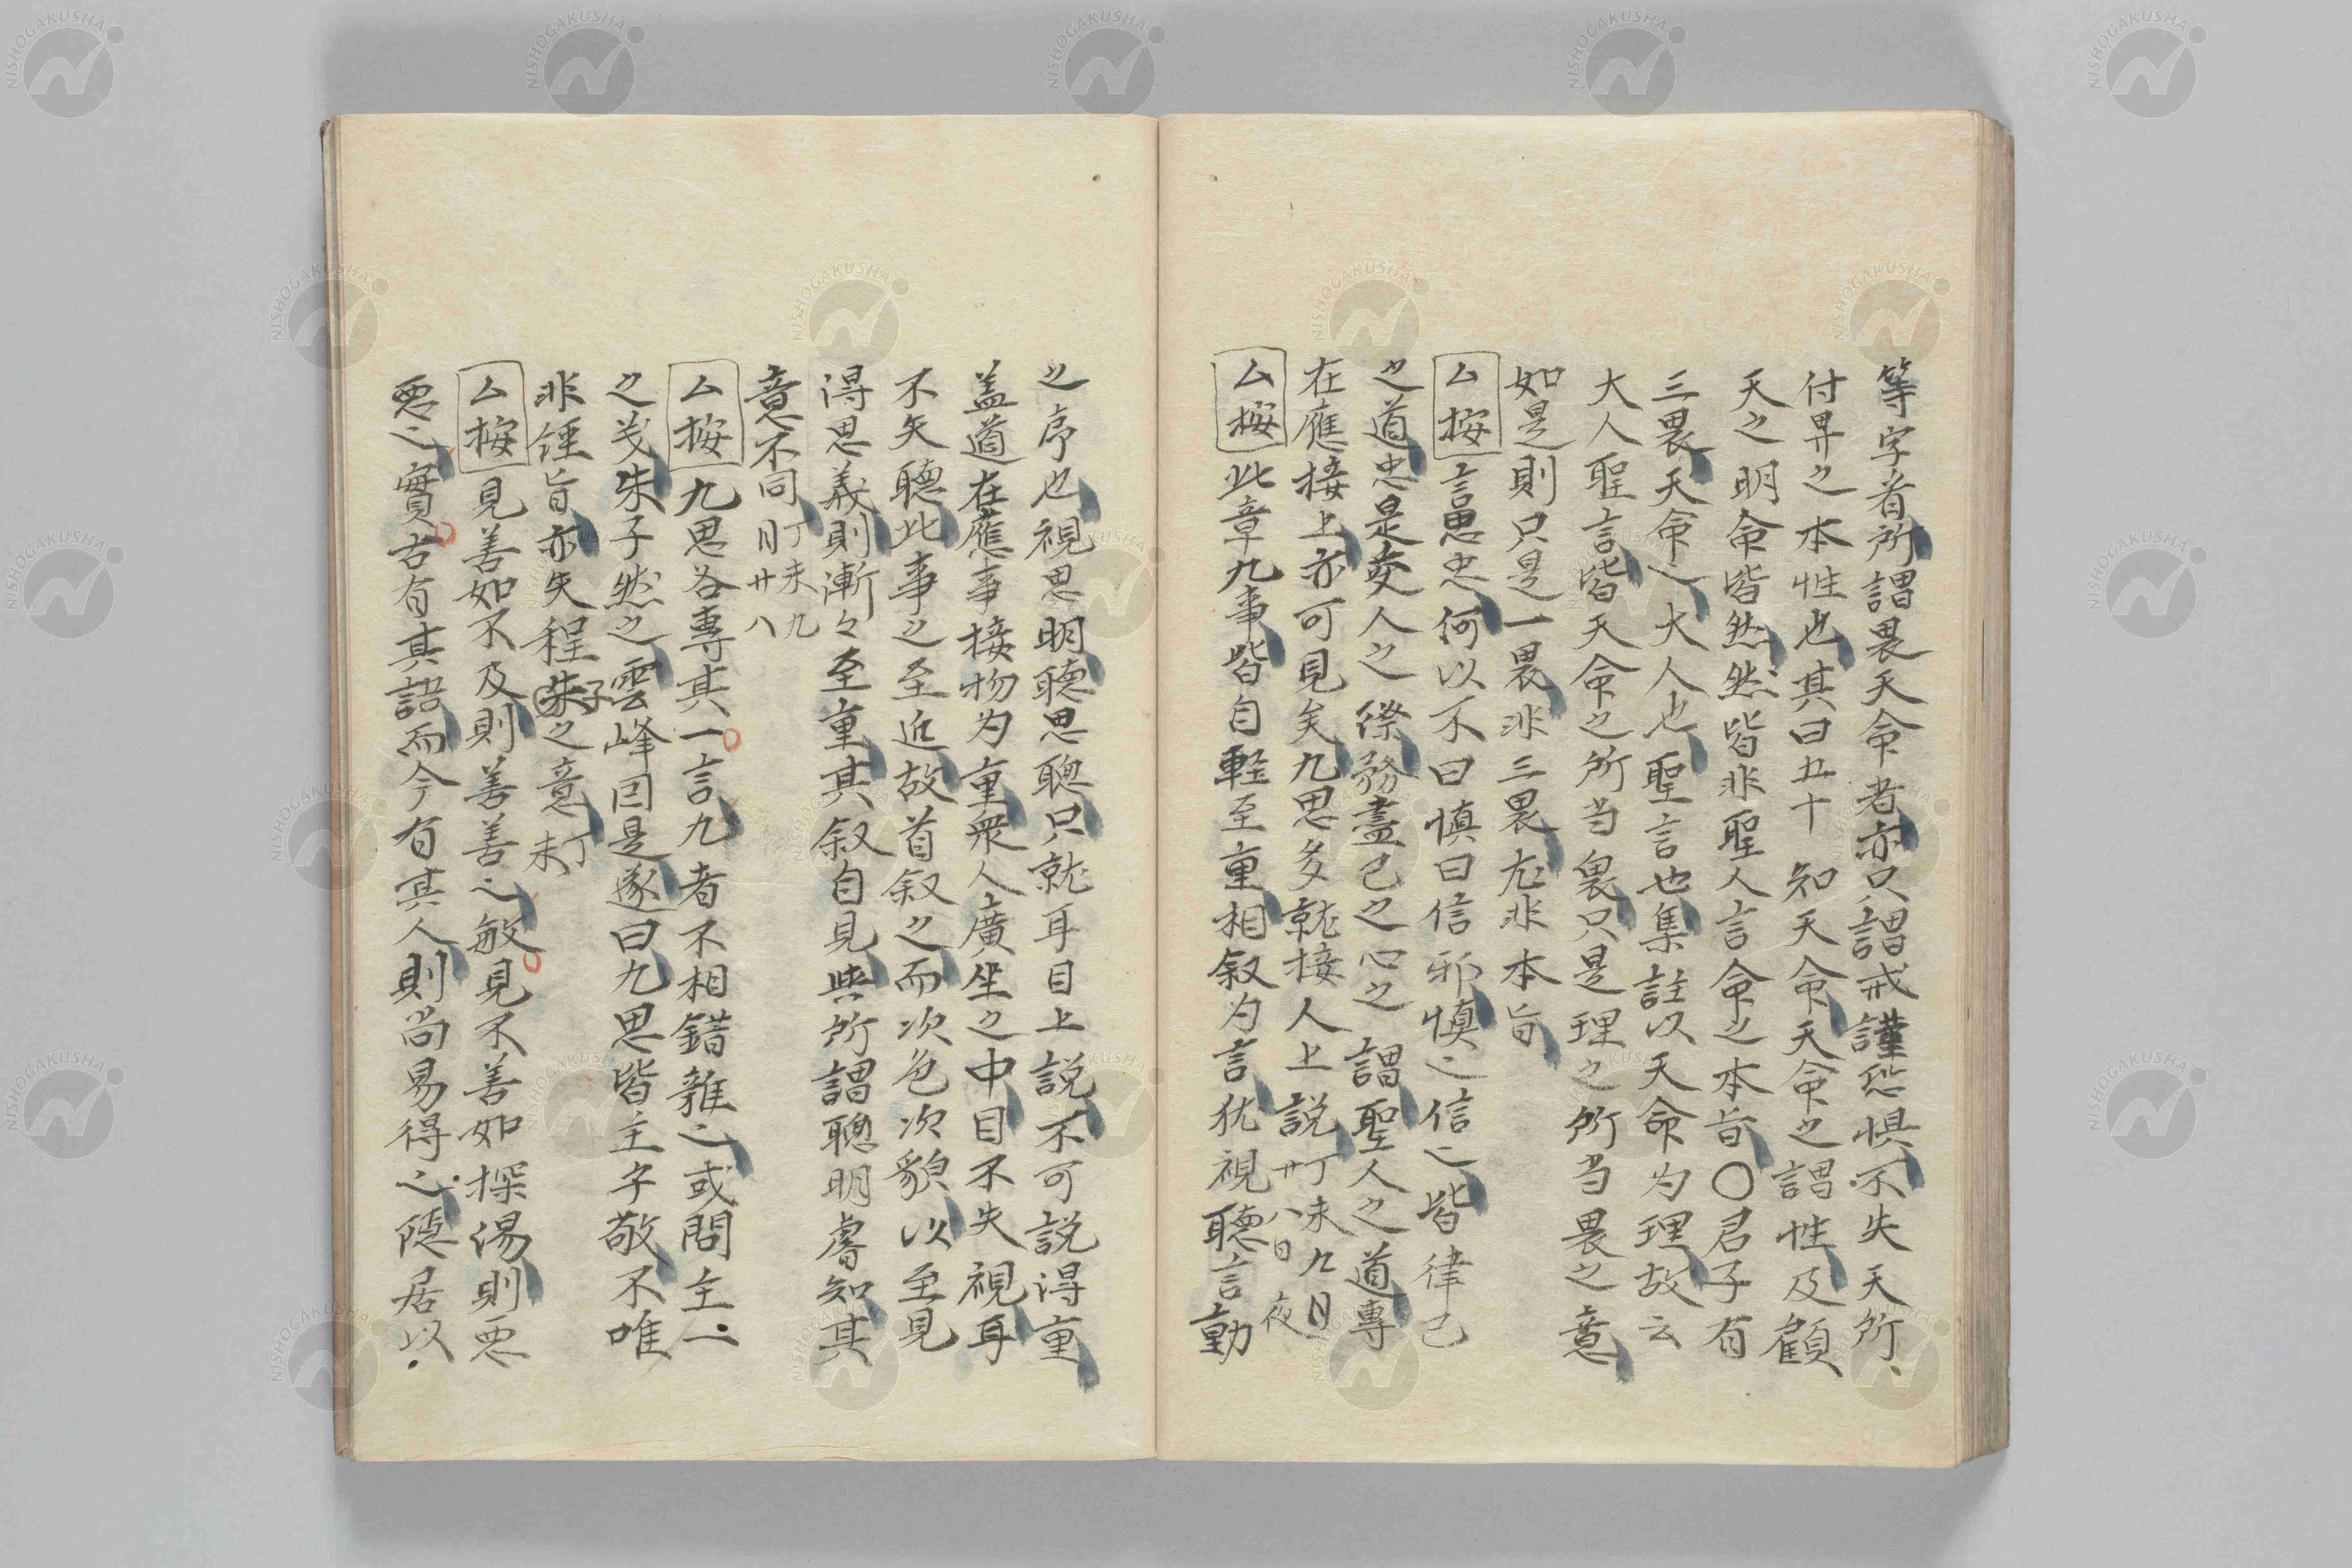 等字者所謂畏天命者亦只謂戒謹恐惧不失天所
付畀之本性也其曰五十知天命天命之謂性及顧
天之明命皆然然皆非聖人言命之本旨〇君子有
三畏天命之大人也聖言也集註以天命为理故云
大人聖言皆天命之所当畏只是理之所当畏之意
如是則只是一畏非三畏尤非本旨
厶按言思忠何以不曰慎曰信邪慎之信之皆律己
之道忠是交人之際務盡己之心之謂聖人之道專
在應接上亦可見矣九思多就接人上説丁未九月
廿八日夜
厶按此章九事皆自軽至重相叙为言犹視聴言動
之序也視思明聴思聰只就耳目上説不可説得重
盖道在應事接物为重衆人廣坐之中目不失視耳
不失聴此事之至近故首叙之而次色次貌以至見
得思義則漸々至重其叙自見與所謂聰明睿知其
意不同丁未九
月廿八
厶按九思各專其一言九者不相錯雜之或問主一
之戈朱子然之雲峰因是遂曰九思皆主乎敬不唯
非経旨亦失程朱子之意丁
未
厶按見善如不及則善善之敏見不善如探湯則悪
悪之實古有其語而今有其人則尚易得之隠居以
NISHOGAKUSHA